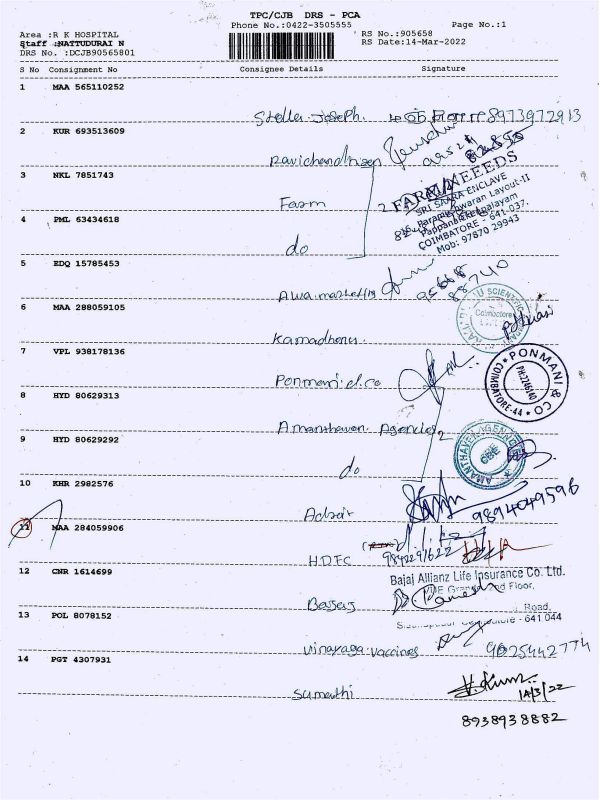 TPC/CJB DRS - PCA
Phone No.:0422-3505555
Page No.:1
Area :R K HOSPITAL
RS No.:905658
Staff :NATTUDURAI N
RS Date:14-Mar-2022
DRS No. :DCJB90565801
S No Consignment No Consignee Details Signature
1 MAA 565110252
Stella Joseph. 8973972913
2 KUR 693513609
Ravichandran
3 NKL 7851743
Farm
FARM NEEEDS
SRI SAARA ENCLAVE
Parameshwaran Layout-II
Pappanaickenpalayam
COIMBATORE - 641 037.
Mob: 97870 29943
4 PML 63434618
do
5 EDQ 15785453
6 MAA 288059105
Kamadhenu
Coimbatore
7 VPL 938178136
Ponmani & co
PONMANI & CO
PH:2146140
COIMBATORE-44
8 HYD 80629313
Amanthaven Agencies
AMANTHAVEN AGENCIES
CBE
9 HYD 80629292
do
10 KHR 2982576
9894049596
11 MAA 284059906
HDFC
12 CNR 1614699
Bajaj
Bajaj Allianz Life Insurance Co. Ltd.
Floor,
Road,
- 641 044
13 POL 8078152
Vinayaga vaccines 9025442774
14 PGT 4307931
Sumathi
V. Kumar
14/3/22
8938938882